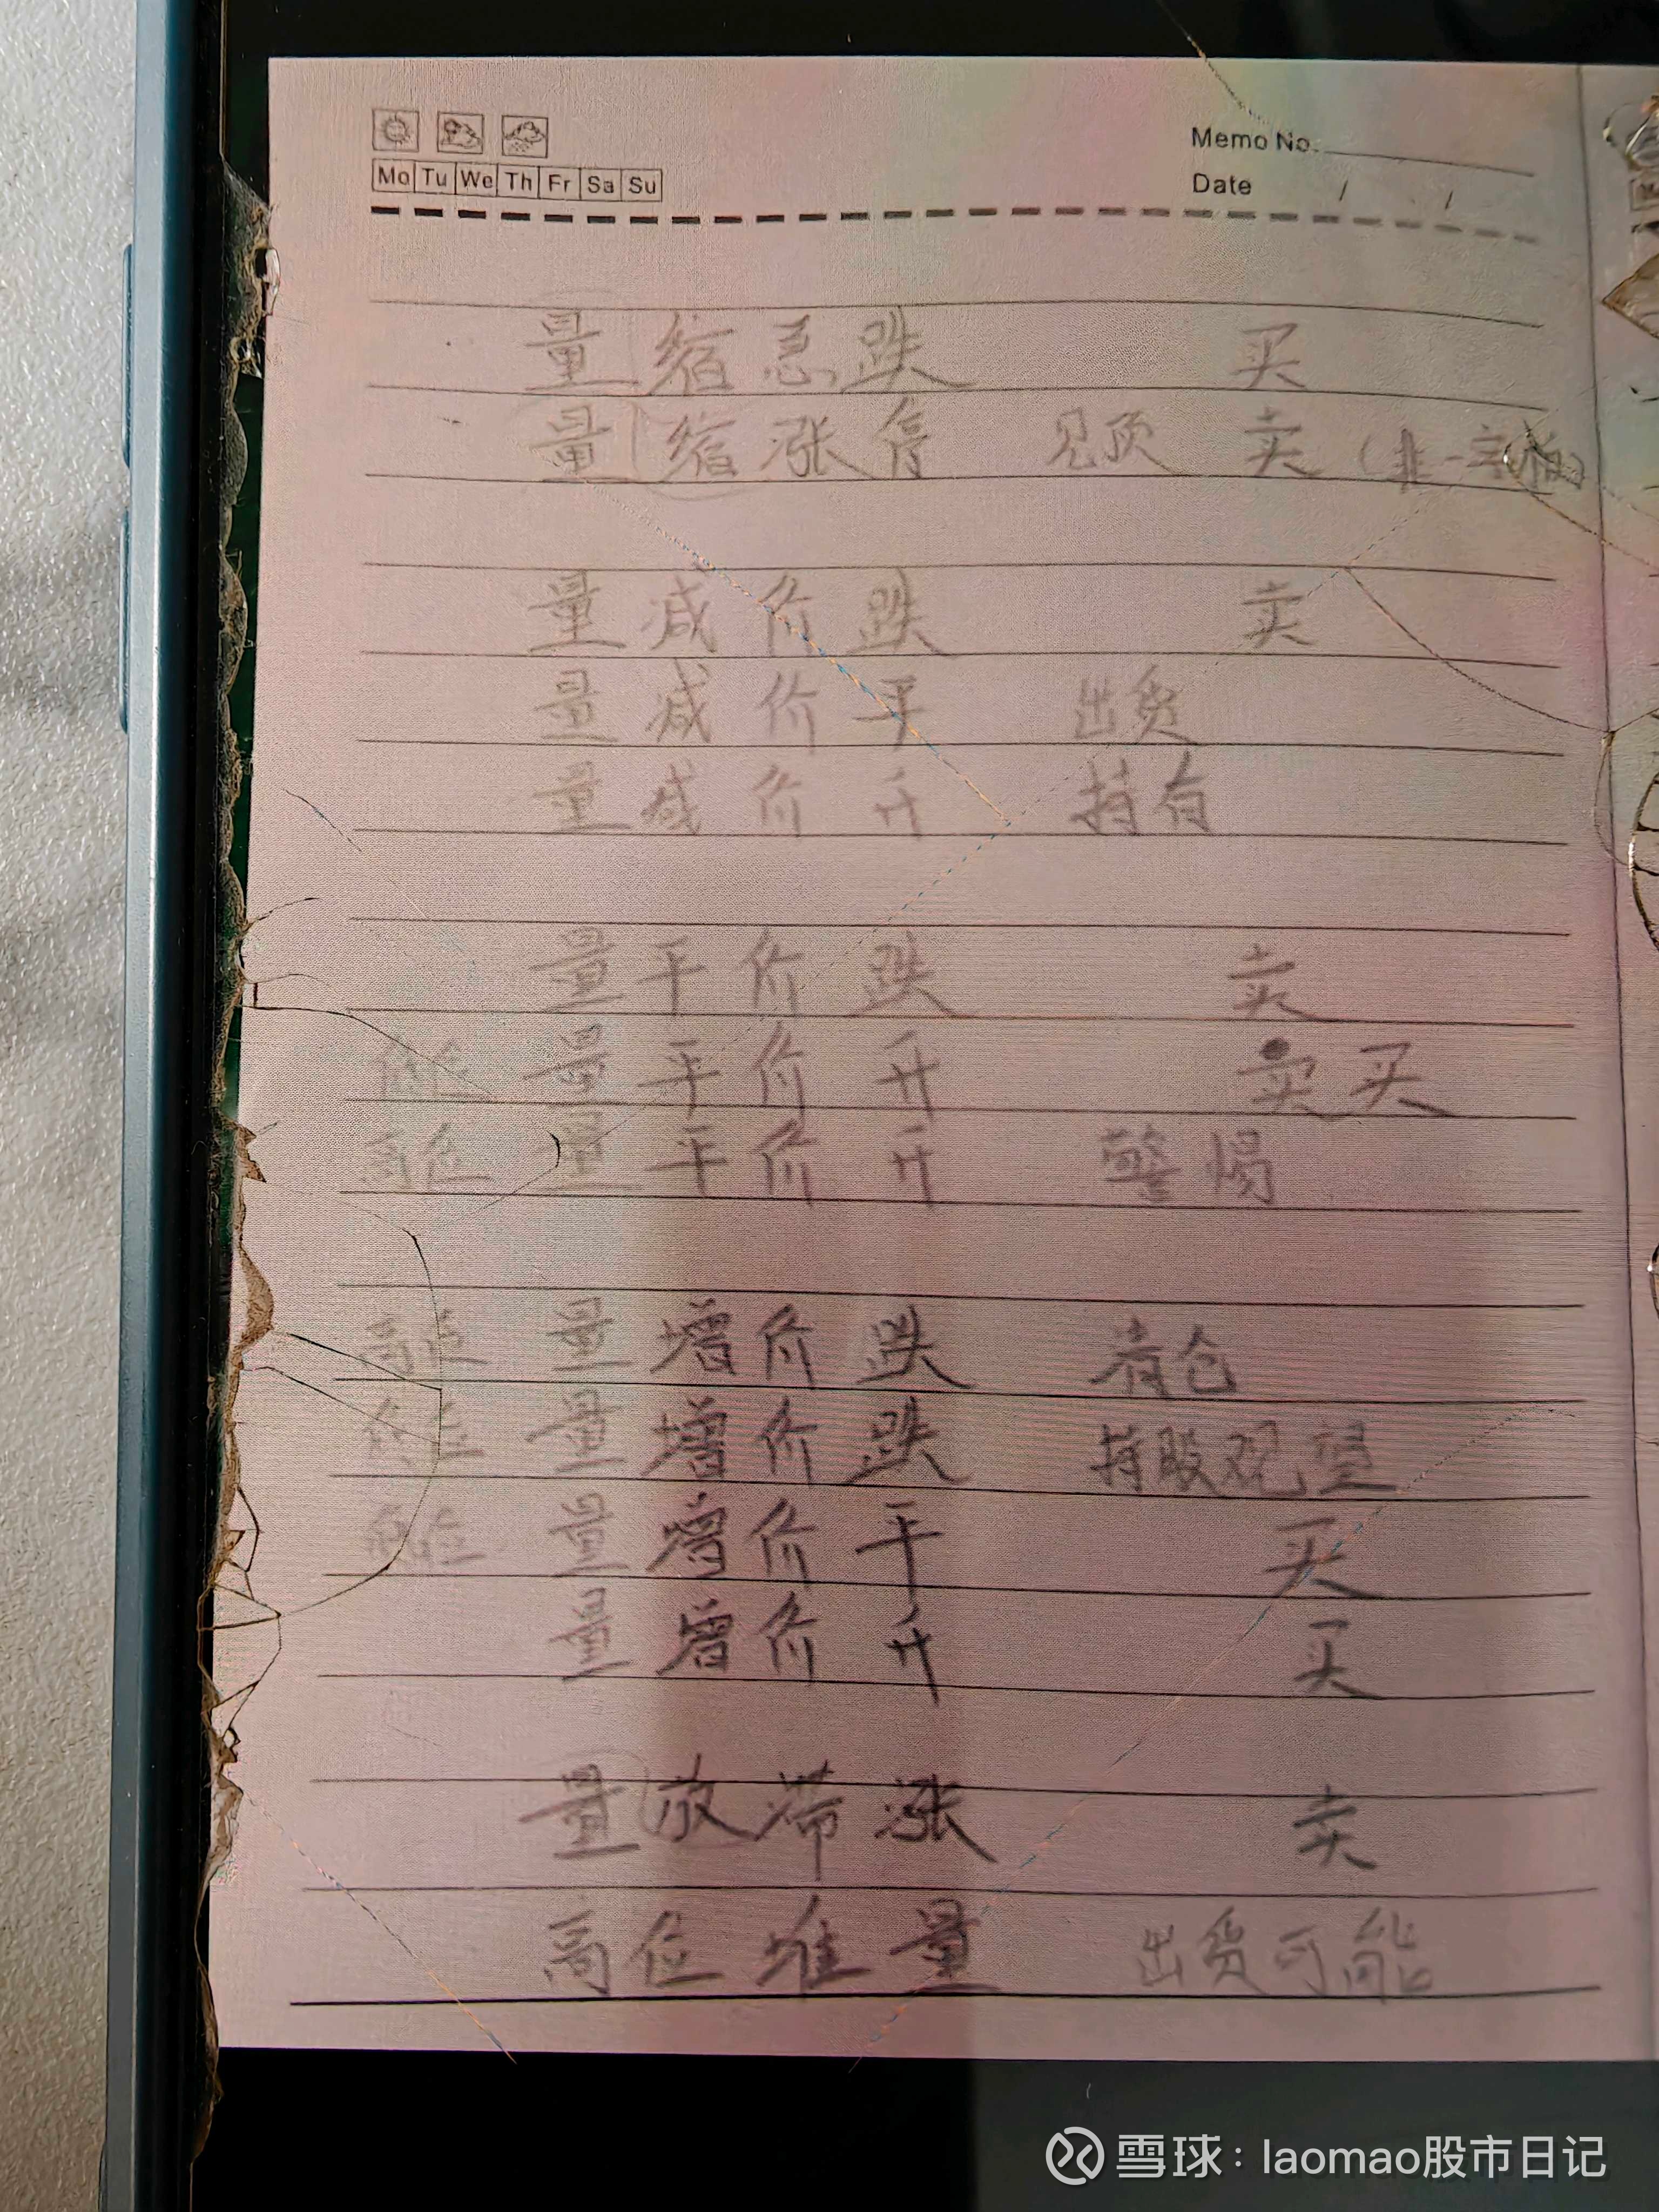 Memo No.
Mo Tu We Th Fr Sa Su
Date / /
量缩急跌 买
量缩涨停 见顶 卖 (非一字板)
量减价跌 卖
量减价平 出货
量减价升 持有
量平价跌 卖
低位 量平价升 买
高位 量平价升 警惕
高位 量增价跌 清仓
低位 量增价跌 持股观望
低位 量增价平 买
量增价升 买
量放滞涨 卖
高位堆量 出货可能
雪球:laomao股市日记